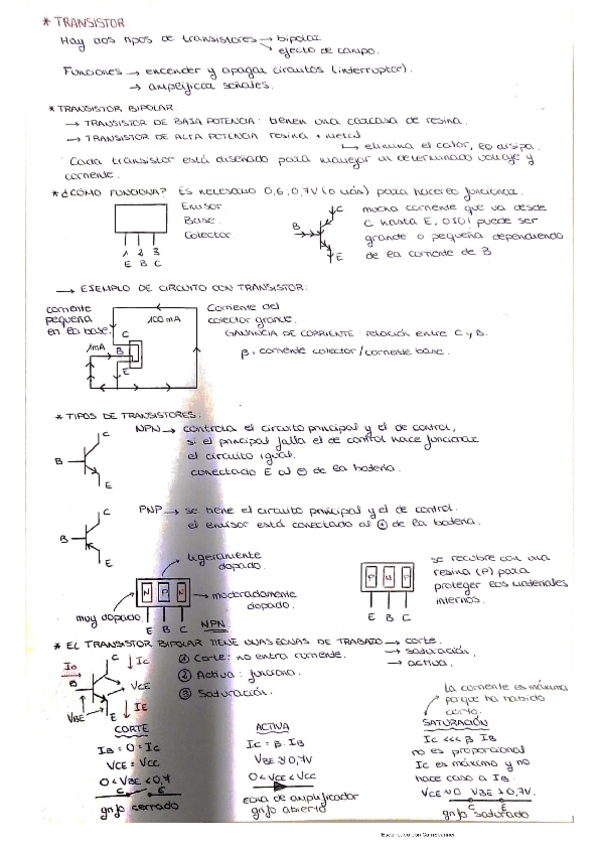 * TRANSISTOR
Hay dos tipos de transistores → bipolar
→ efecto de campo.
Funciones → encender y apagar circuitos (interruptor).
→ amplificar señales.
* TRANSISTOR BIPOLAR
→ TRANSISTOR DE BAJA POTENCIA: tienen una carcasa de resina.
→ TRANSISTOR DE ALTA POTENCIA resina + metal
→ elimina el calor, lo disipa.
Cada transistor está diseñado para manejar un determinado voltaje y
corriente.
* ¿CÓMO FUNCIONA? Es necesario 0,6, 0,7V (o más) para hacerlo funcionar.
Emisor
Base
Colector
1 2 3
E B C
C
B
E
mucha corriente que va desde
C hasta E, puede ser
grande o pequeña dependiendo
de la corriente de B
→ EJEMPLO DE CIRCUITO CON TRANSISTOR:
corriente
pequeña
en la base.
100 mA
1mA
C
B
E
Corriente del
colector grande.
GANANCIA DE CORRIENTE: relación entre C y B.
β = corriente colector / corriente base.
* TIPOS DE TRANSISTORES:
C
B
E
NPN → controla el circuito principal y el de control,
si el principal falla el de control hace funcionar
el circuito igual.
conectado E al ⊖ de la batería.
C
B
E
PNP → se tiene el circuito principal y el de control.
el emisor está conectado al ⊕ de la batería.
ligeramente
dopado.
N P N
→ moderadamente
dopado.
muy dopado.
E B C
NPN
P N P
se recubre con una
resina (P) para
proteger los materiales
internos.
* EL TRANSISTOR BIPOLAR TIENE ZONAS DE TRABAJO → corte.
→ saturación.
→ activa.
① Corte: no entra corriente.
② Activa: funciona.
③ Saturación.
C
IC
B
VCE
VBE
E
IE
La corriente es máxima
porque ha habido
corto.
CORTE
IB = 0 = IC
VCE = VCC
0 < VBE < 0,7
C E
grifo cerrado
ACTIVA
IC = β · IB
VBE ≥ 0,7V
0 < VCE < VCC
zona de amplificador
grifo abierto
SATURACIÓN
IC <<< β IB
no es proporcional
IC es máximo y no
hace caso a IB.
VCE ≈ 0 VBE ≥ 0,7V.
C E
grifo saturado
Escaneado con CamScanner